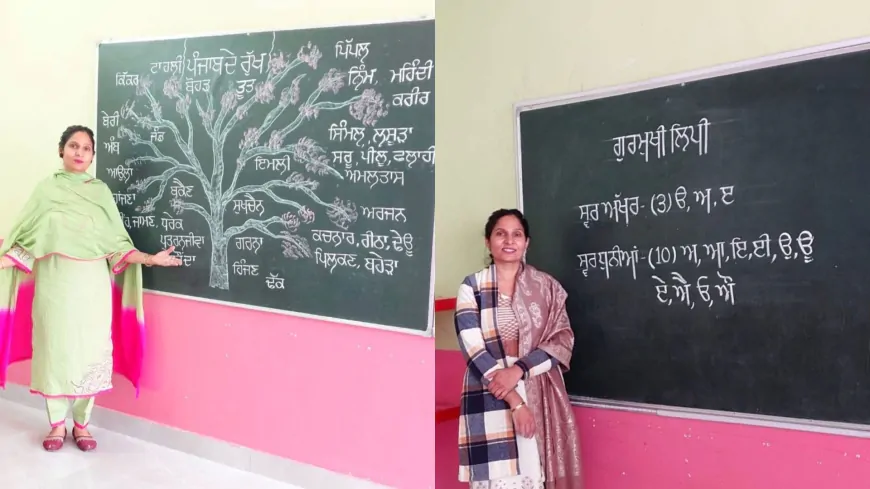 ਟਾਹਲੀ ਪੰਜਾਬ ਦੇ ਰੁੱਖ ਪਿੱਪਲ
ਕਿੱਕਰ ਬੋਹੜ ਤੂਤ ਨਿੰਮ, ਮਹਿੰਦੀ
ਕਰੀਰ
ਬੇਰੀ ਜੰਡ ਸਿੰਮਲ, ਲਸੂੜਾ
ਅੰਬ ਇਮਲੀ ਸਰੂ, ਪੀਲੂ, ਫਲਾਹੀ
ਆਉਲਾ ਅਮਲਤਾਸ
ਬਕੈਣ
ਜਾਮਣ, ਧਰੇਕ ਸੁਖਚੈਨ ਅਰਜਨ
ਪੁਤਰਨਜੀਵਾ ਗਰਨਾ ਕਚਨਾਰ, ਰੀਠਾ, ਢੇਊ
ਹਿੰਜਣ ਪਿਲਕਣ, ਬਹੇੜਾ
ਢੱਕ
ਗੁਰਮੁਖੀ ਲਿਪੀ
ਸ੍ਵਰ ਅੱਖਰ- (3) ੳ, ਅ, ੲ
ਸ੍ਵਰ ਧੁਨੀਆਂ- (10) ਅ, ਆ, ਇ, ਈ, ਉ, ਊ
ਏ, ਐ, ਓ, ਔ